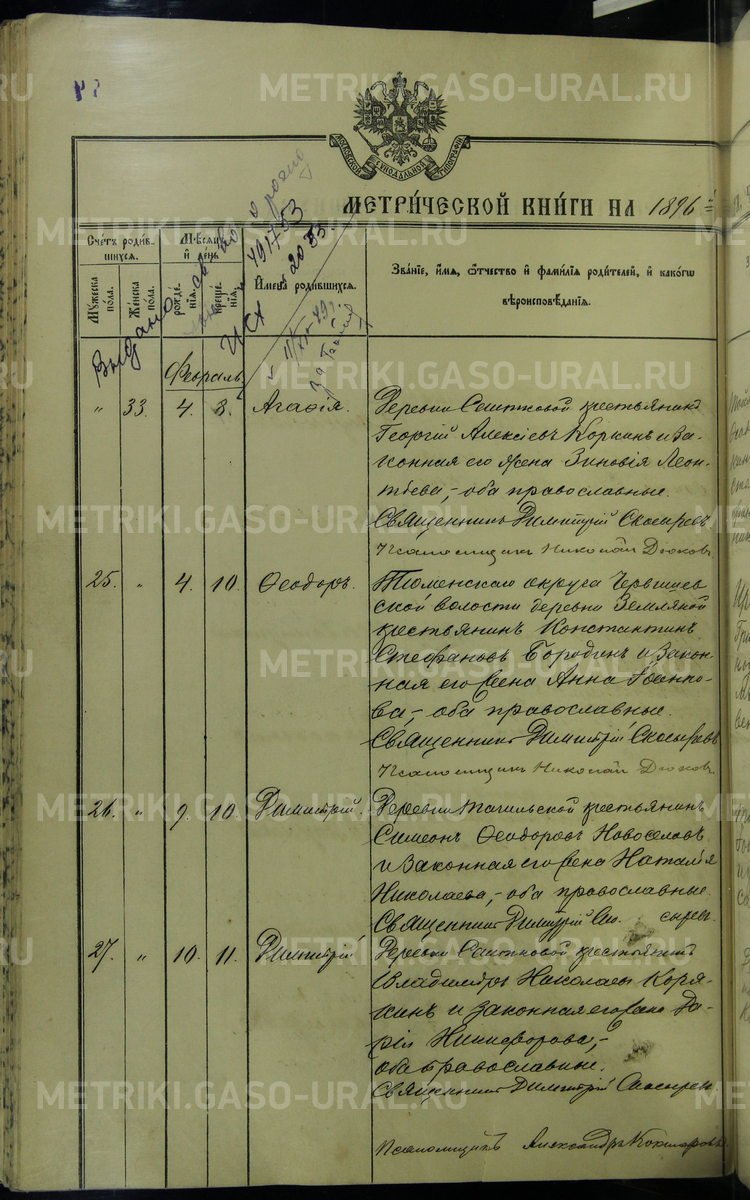 МЕТРИ́ЧЕСКОЙ КНИ́ГИ НА 1896 г
МОСКОВСКОЙ СѴНОДАЛЬНОЙ ТИПОГРАФІИ
Счетъ родив-
шихся.
Мѣсяцъ
и день
Имена родившихся.
Званіе, имя, отчество и фамилія родителей, и какогѡ
вѣроисповѣданія.
Мужеска
пола.
Женска
пола.
рожде-
нія.
креще-
нія.
Выдано
491753
20 55
Февраль
„ 33. 4. 8. Агафія.
Деревни Саитковой крестьянинъ
Георгій Алексѣевъ Коркинъ и за-
конная его жена Зиновія Леон-
тьева, - оба православные.
Священникъ Димитрій Скосыревъ
Псаломщикъ Николай Дюковъ
25. „ 4. 10. Ѳеодоръ.
Тюменскаго округа Червишев-
ской волости деревни Земляной
крестьянинъ Константинъ
Стефановъ Бородинъ и закон-
ная его жена Анна Іоанно-
ва, - оба православные.
Священникъ Димитрій Скосыревъ
Псаломщикъ Николай Дюковъ
26. „ 9. 10. Димитрій.
Деревни Тагильской крестьянинъ
Симеонъ Ѳеодоровъ Новоселовъ
и законная его жена Наталія
Николаева, - оба православные
Священникъ Димитрій Ско сыревъ
27. „ 10. 11. Димитрій
Деревни Саитковой крестьянинъ
Владиміръ Николаевъ Коря-
кинъ и законная его жена Да-
рія Никифорова, -
оба православные.
Священникъ Димитрій Скосыревъ
Псаломщикъ Александръ Кокшаровъ
METRIKI.GASO-URAL.RU